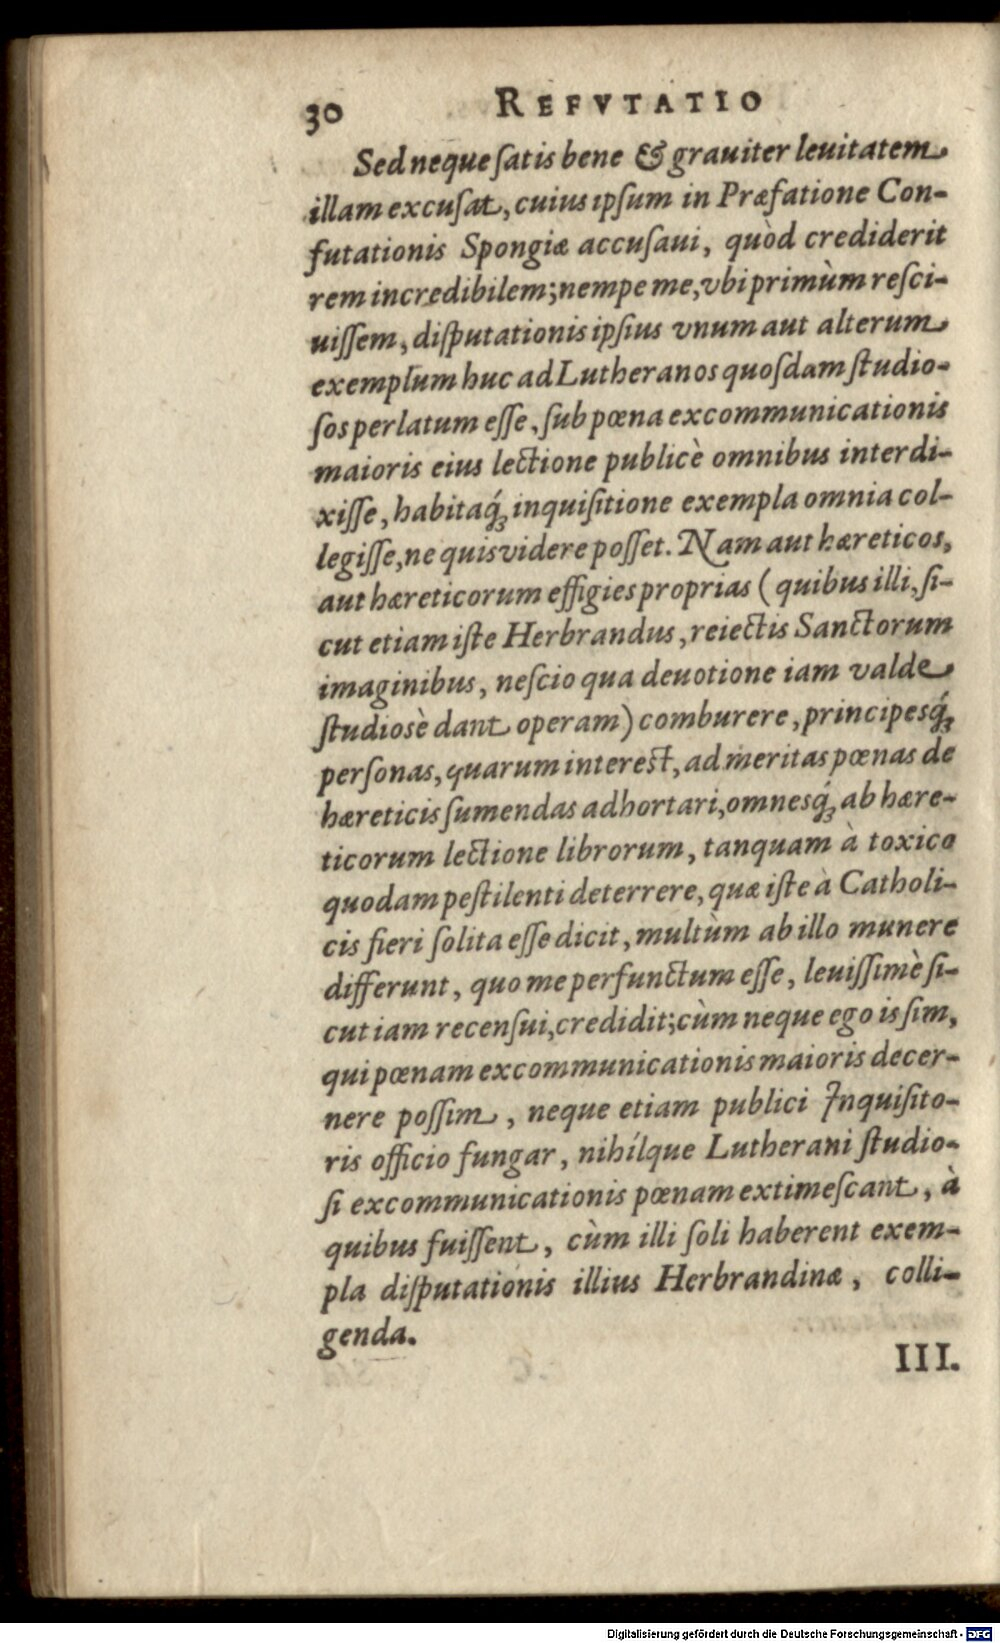 30 REFVTATIO
Sed neque ſatis bene & grauiter leuitatem
illam excuſat, cuius ipſum in Præfatione Con-
futationis Spongiæ accuſaui, quòd crediderit
rem incredibilem; nempe me, vbi primùm reſci-
uiſſem, diſputationis ipſius vnum aut alterum
exemplum huc ad Lutheranos quoſdam ſtudio-
ſos perlatum eſſe, ſub pœna excommunicationis
maioris eius lectione publicè omnibus interdi-
xiſſe, habitaq́ꝫ inquiſitione exempla omnia col-
legiſſe, ne quis videre poſſet. Nam aut hæreticos,
aut hæreticorum effigies proprias (quibus illi, ſi-
cut etiam iſte Herbrandus, reiectis Sanctorum
imaginibus, neſcio qua deuotione iam valde
ſtudiosè dant operam) comburere, principesq́ꝫ
perſonas, quarum intereſt, ad meritas pœnas de
hæreticis ſumendas adhortari, omnesq́ꝫ ab hære-
ticorum lectione librorum, tanquam à toxico
quodam peſtilenti deterrere, quæ iſte à Catholi-
cis fieri ſolita eſſe dicit, multùm ab illo munere
differunt, quo me perfunctum eſſe, leuiſſimè ſi-
cut iam recenſui, credidit; cùm neque ego is ſim,
qui pœnam excommunicationis maioris decer-
nere poſſim, neque etiam publici Inquiſito-
ris officio fungar, nihílque Lutherani ſtudio-
ſi excommunicationis pœnam extimeſcant, à
quibus fuiſſent, cùm illi ſoli haberent exem-
pla diſputationis illius Herbrandinæ, colli-
genda.
III.
Digitalisierung gefördert durch die Deutsche Forschungsgemeinschaft - DFG